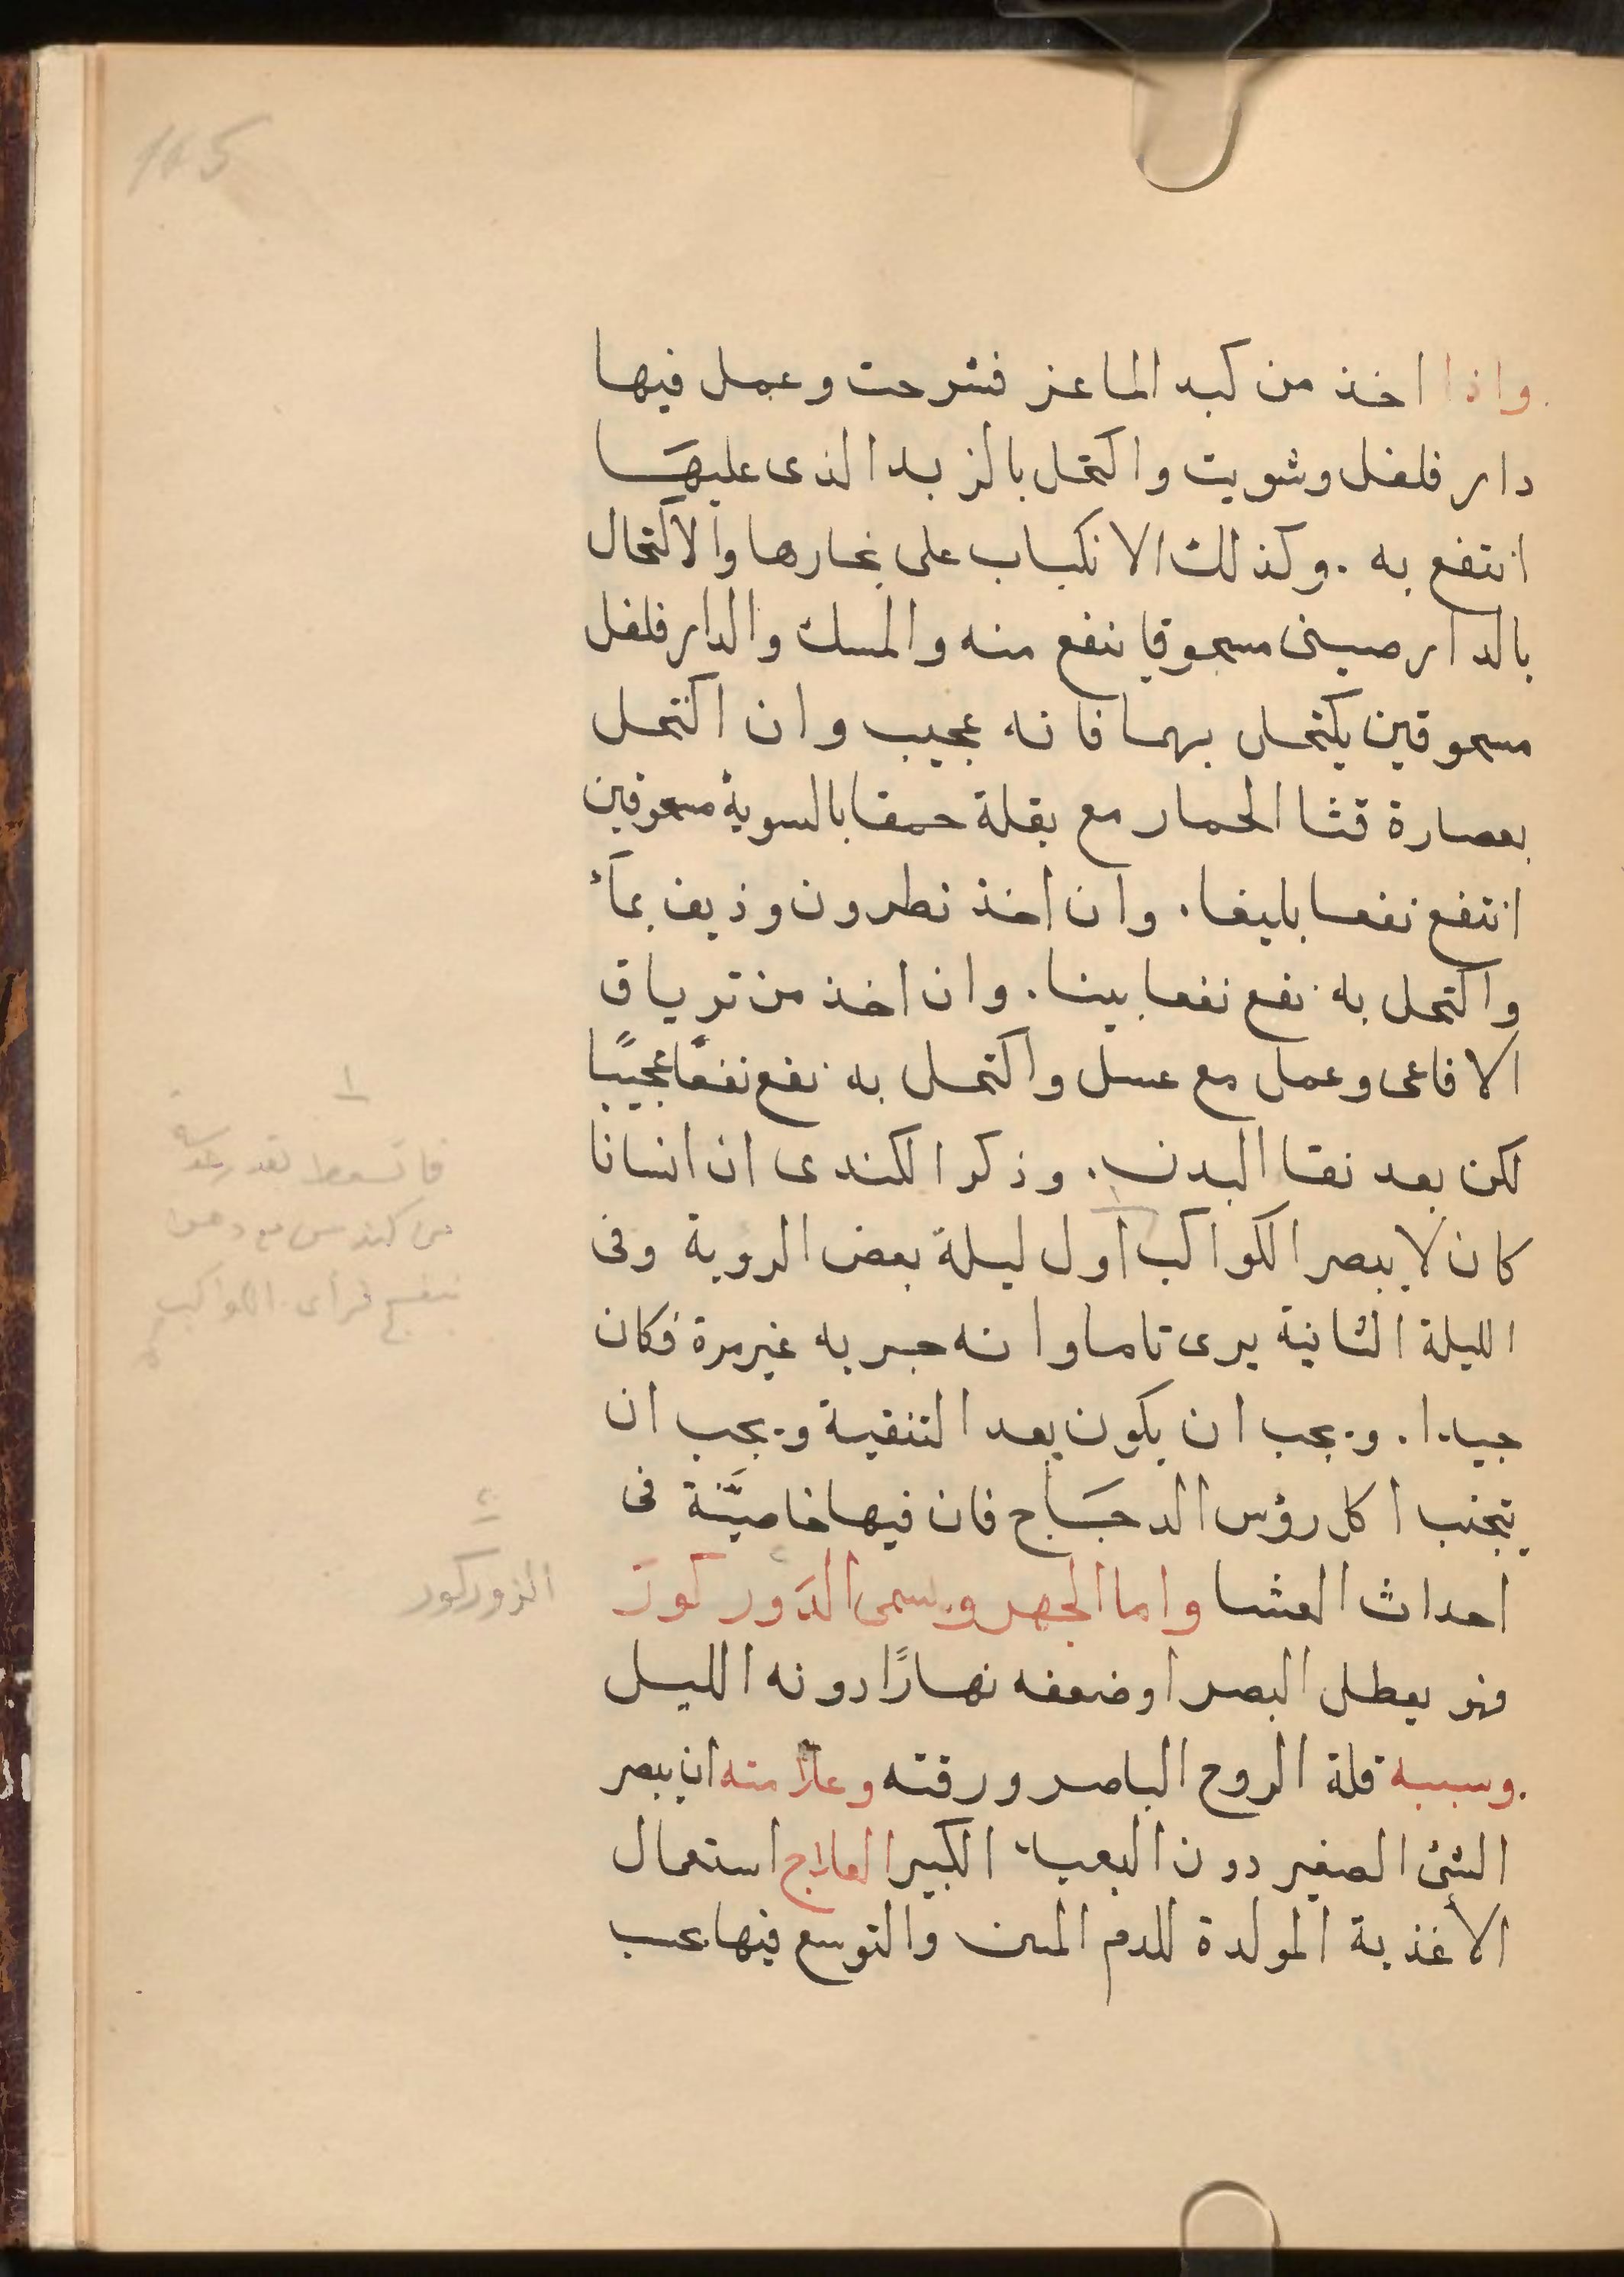 165
واذا اخذ من كبد الماعز فشرحت وعمل فيها
دار فلفل وشويت واكتحل بالزبد الذى عليهَا
انتفع به . وكذلك الانكباب على بخارها والاكتحال
بالدارصينى مسحوقا نفع منه والمسك والدارفلفل
مسحوقين يكتحل بهما فانه عجيب وان اكتحل
بعصارة قثا الحمار مع بقلة حمقا بالسوية مسحوقين
انتفع نفعا بليغا. وان اخذ نطرون وذيف بمآء
واكتحل به نفع نفعا بينا. وان اخذ من ترياق
الافاعى وعمل مع عسل واكتحل به نفع نفعًا عجيبًا
لكن بعد نقا البدن. وذكر الكندى ان انسانا
كان لا يبصر الكواكب اول ليلة بعض الروية وفى
الليلة الثانية يرى تاما وانه جربه غير مرة فكان
جيدا. ويجب ان يكون بعد التنقية ويجب ان
يتجنب اكل رؤس الدجَاج فان فيها خاصيَّة فى
احداث العشا واما الجهر ويسمى الدَور كورَ
فهو يعطل البصر او ضعفه نهارًا دونه الليل
.وسببه قلة الروح الباصر ورقته وعلامته ان يبصر
الشئ الصغير دون البعيد الكبير العلاج استعمال
الأغذية المولدة للدم المتين والتوسع فيها بحسب
١
فاتسعط بقدر عدسة
من كندس مع دهن
بنفسج فرأى الكواكب
٢
الزوركور